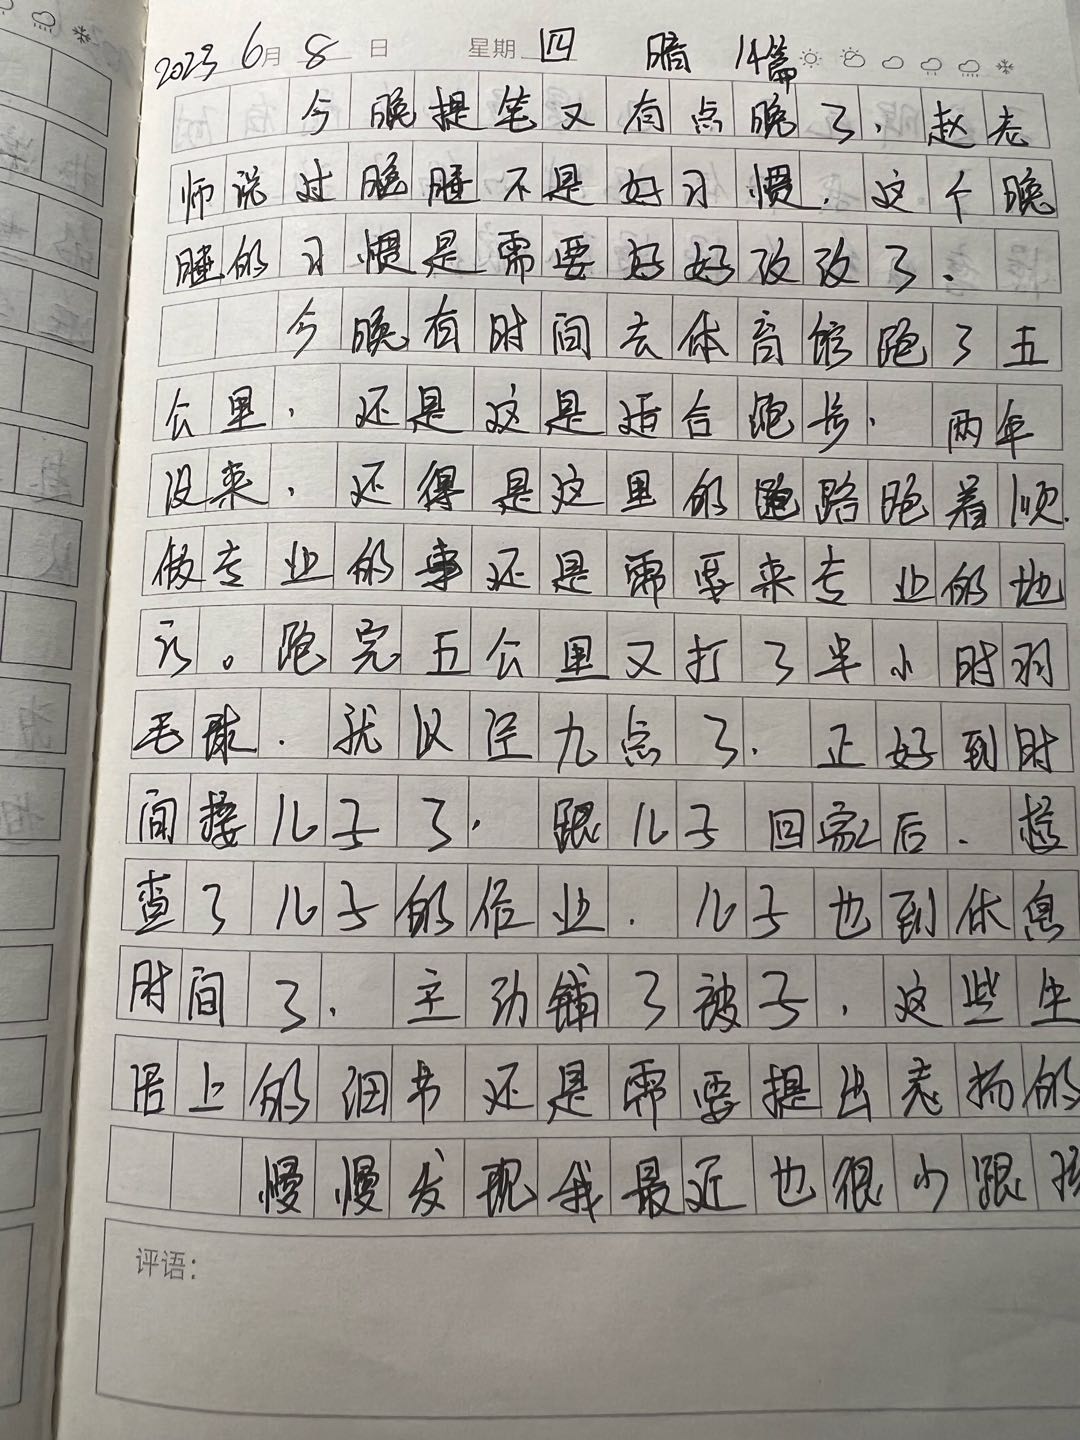 2023 6月 8 日 星期 四 晴 14篇
今晚提笔又有点晚了，赵老
师说过晚睡不是好习惯，这个晚
睡的习惯是需要好好改改了．
今晚有时间去体育馆跑了五
公里，还是这是适合跑步，两年
没来，还得是这里的跑路跑着顺．
做专业的事还是需要来专业的地
方。跑完五公里又打了半小时羽
毛球．就以径九点了．正好到时
间接儿子了，跟儿子回家后．检
查了儿子的作业．儿子也到休息
时间了，主动铺了被子，这些生
活上的细节还是需要提出表扬的
慢慢发现我最近也很少跟孩
评语：